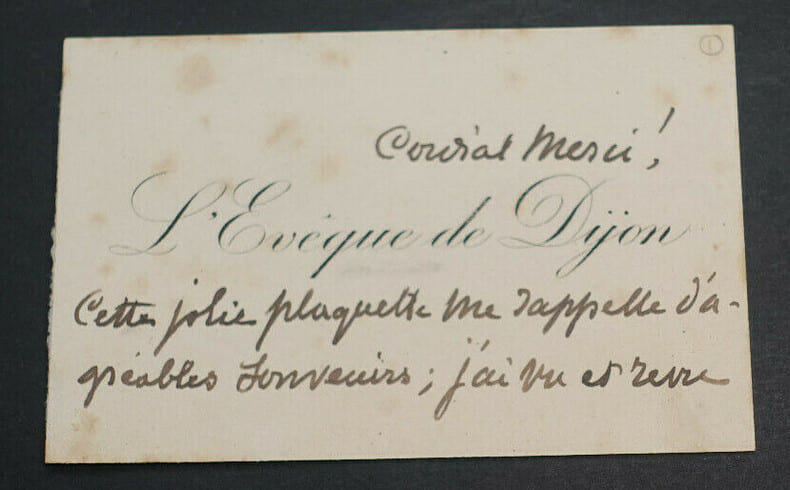 1
Cordial Merci !
L'Evêque de Dijon
Cette jolie plaquette me rappelle d'a-
gréables souvenirs ; j'ai vu et revu